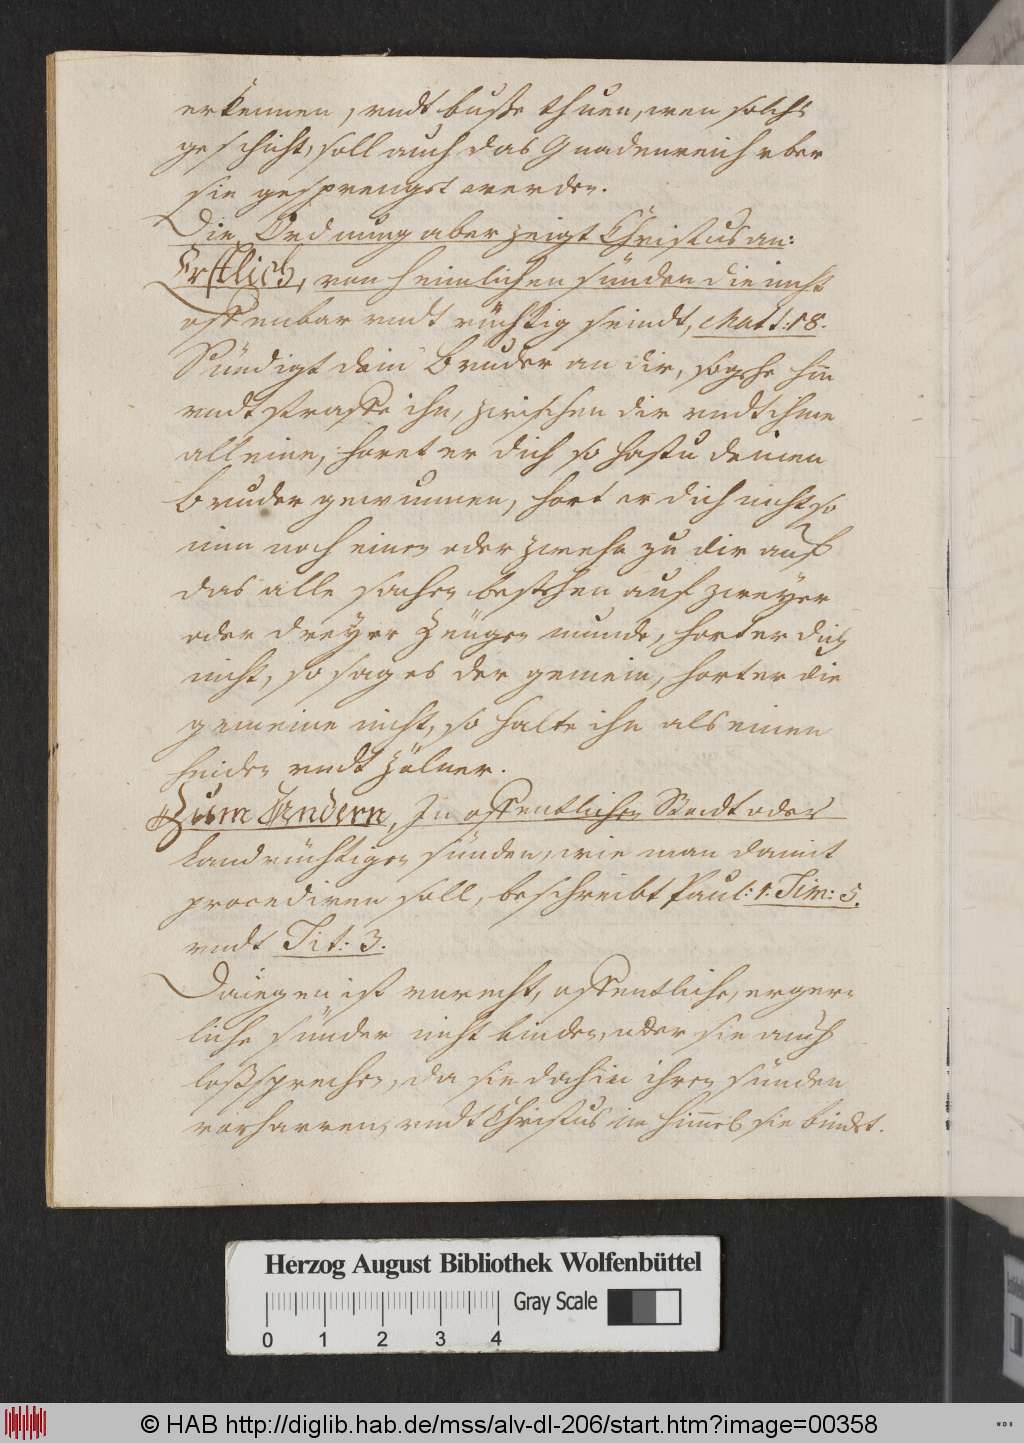 erkennen, vndt buße thuen, wen solchs
geschicht, soll auch das Gnadenreich vber
sie gesprenget werden.
Die Ordnung aber zeigt Christus an:
Erstlich, von heimlichen sünden die nicht
offenbar vndt rüchtig seindt, Matt: 18.
Sündigt dein Bruder an dir, so gehe hin
vndt straffe ihn, zwischen dir vndt ihme
alleine, horet er dich so hastu deinen
bruder gewunnen, hort er dich nicht so
nim noch einen oder zwehe zu dir auf
das alle sachen bestehen auf zweyer
oder dreyer Zeügen munde, hort er dich
nicht, so sag es der gemein, hort er die
gemeine nicht, so halte ihn als einen
heiden vndt Zölner.
Zum Andern, In offentlichen Stadt oder
Landrüchtigen sünden, wie man damit
procediren soll, beschreibt Paul: 1. Tim: 5.
vndt Tit: 3.
Daiegen ist vnrecht, offentliche, erger-
liche sünder nicht binden, oder sie auch
loßsprechen, da sie doch in ihren sünden
vorharren, vndt Christus im himel sie bindet.
Herzog August Bibliothek Wolfenbüttel
Gray Scale
0 1 2 3 4
© HAB http://diglib.hab.de/mss/alv-dl-206/start.htm?image=00358